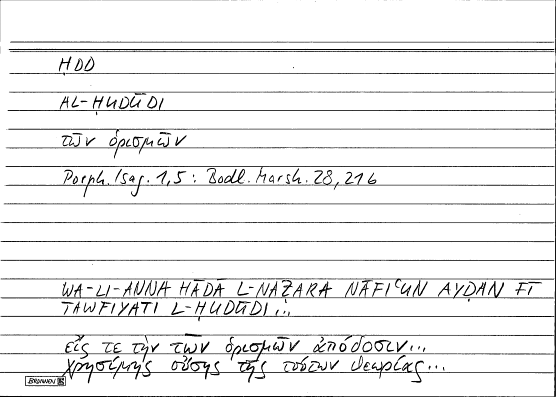 ḤDD
AL-ḤUDŪDI
τῶν ὁρισμῶν
Porph. Isag. 1,5 : Bodl. Marsh. 28, 216
WA-LI-ANNA HĀḎĀ L-NAẒARA NĀFIʿUN AYḌAN FĪ
TAWFIYATI L-ḤUDŪDI ...
εἴς τε τὴν τῶν ὁρισμῶν ἀπόδοσιν...
χρησίμης οὔσης τῆς τούτων θεωρίας...
BRUNNEN